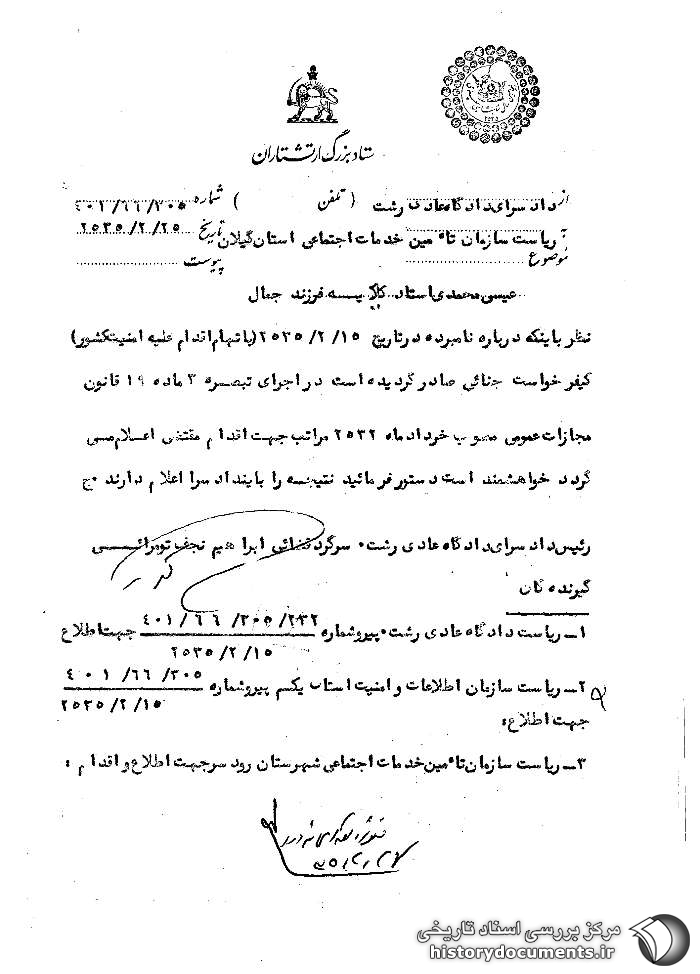 ستاد بزرگ ارتشتاران
از دادسرای دادگاه عادی رشت ( تلفن ) شماره ۴۰۱/۶۶/۳۰۵
ریاست سازمان تاٴمین خدمات اجتماعی استان گیلان تاریخ ۲۵۳۵/۲/۲۵
موضوع پیوست
عیسی محمدی استاد کلایه فرزند جمال
نظر باینکه درباره نامبرده در تاریخ ۲۵۳۵/۲/۱۵ (باتهام اقدام علیه امنیت کشور)
کیفرخواست جنائی صادر گردیده است در اجرای تبصره ۳ ماده ۱۹ قانون
مجازات عمومی مصوب خرداد ماه ۲۵۳۲ مراتب جهت اقدام مقتضی اعلام می
گردد خواهشمند است دستور فرمائید نتیجه را باین دادسرا اعلام دارند ج
رئیس دادسرای دادگاه عادی رشت۰ سرگرد قضائی ابراهیم نجف تومرائی
گیرنده گان
۱ـ ریاست دادگاه عادی رشت۰ پیرو شماره ۴۰۱/۶۶/۳۰۵/۲۳۲ جهت اطلاع
۲۵۳۵/۲/۱۵
۲ـ ریاست سازمان اطلاعات و امنیت استان یکم پیرو شماره ۴۰۱/۶۶/۳۰۵
۲۵۳۵/۲/۱۵
جهت اطلاع:
۳ـ ریاست سازمان تاٴمین خدمات اجتماعی شهرستان رودسر جهت اطلاع و اقدام :
مرکز بررسی اسناد تاریخی
historydocuments.ir